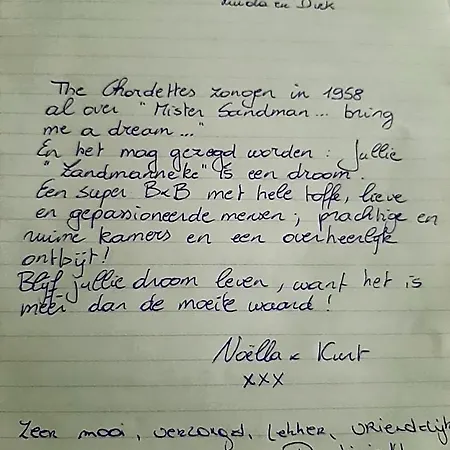 Linda en Dirk
The Chordettes zongen in 1958
al over "Mister Sandman... bring
me a dream..."
En het mag gezegd worden: Jullie
"Zandmanneke" is een droom.
Een super B&B met hele toffe, lieve
en gepassioneerde mensen; prachtige en
ruime kamers en een overheerlijk
ontbijt!
Blijf jullie droom leven, want het is
meer dan de moeite waard!
Noëlla & Kurt
xxx
Zeer mooi, verzorgd, lekker, vriendelijk